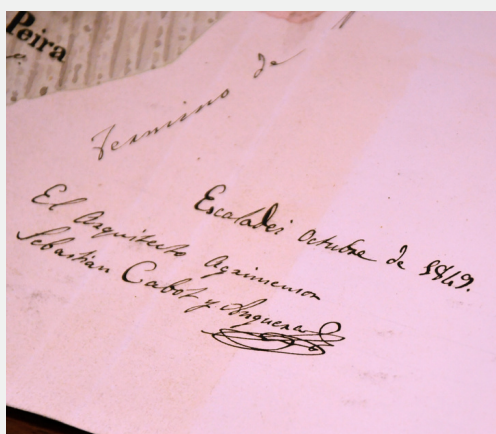 Peira
Termino de
Escaladei Octubre de 1849.
El Arquitecto Agrimensor
Sebastian Cabot y Anguera